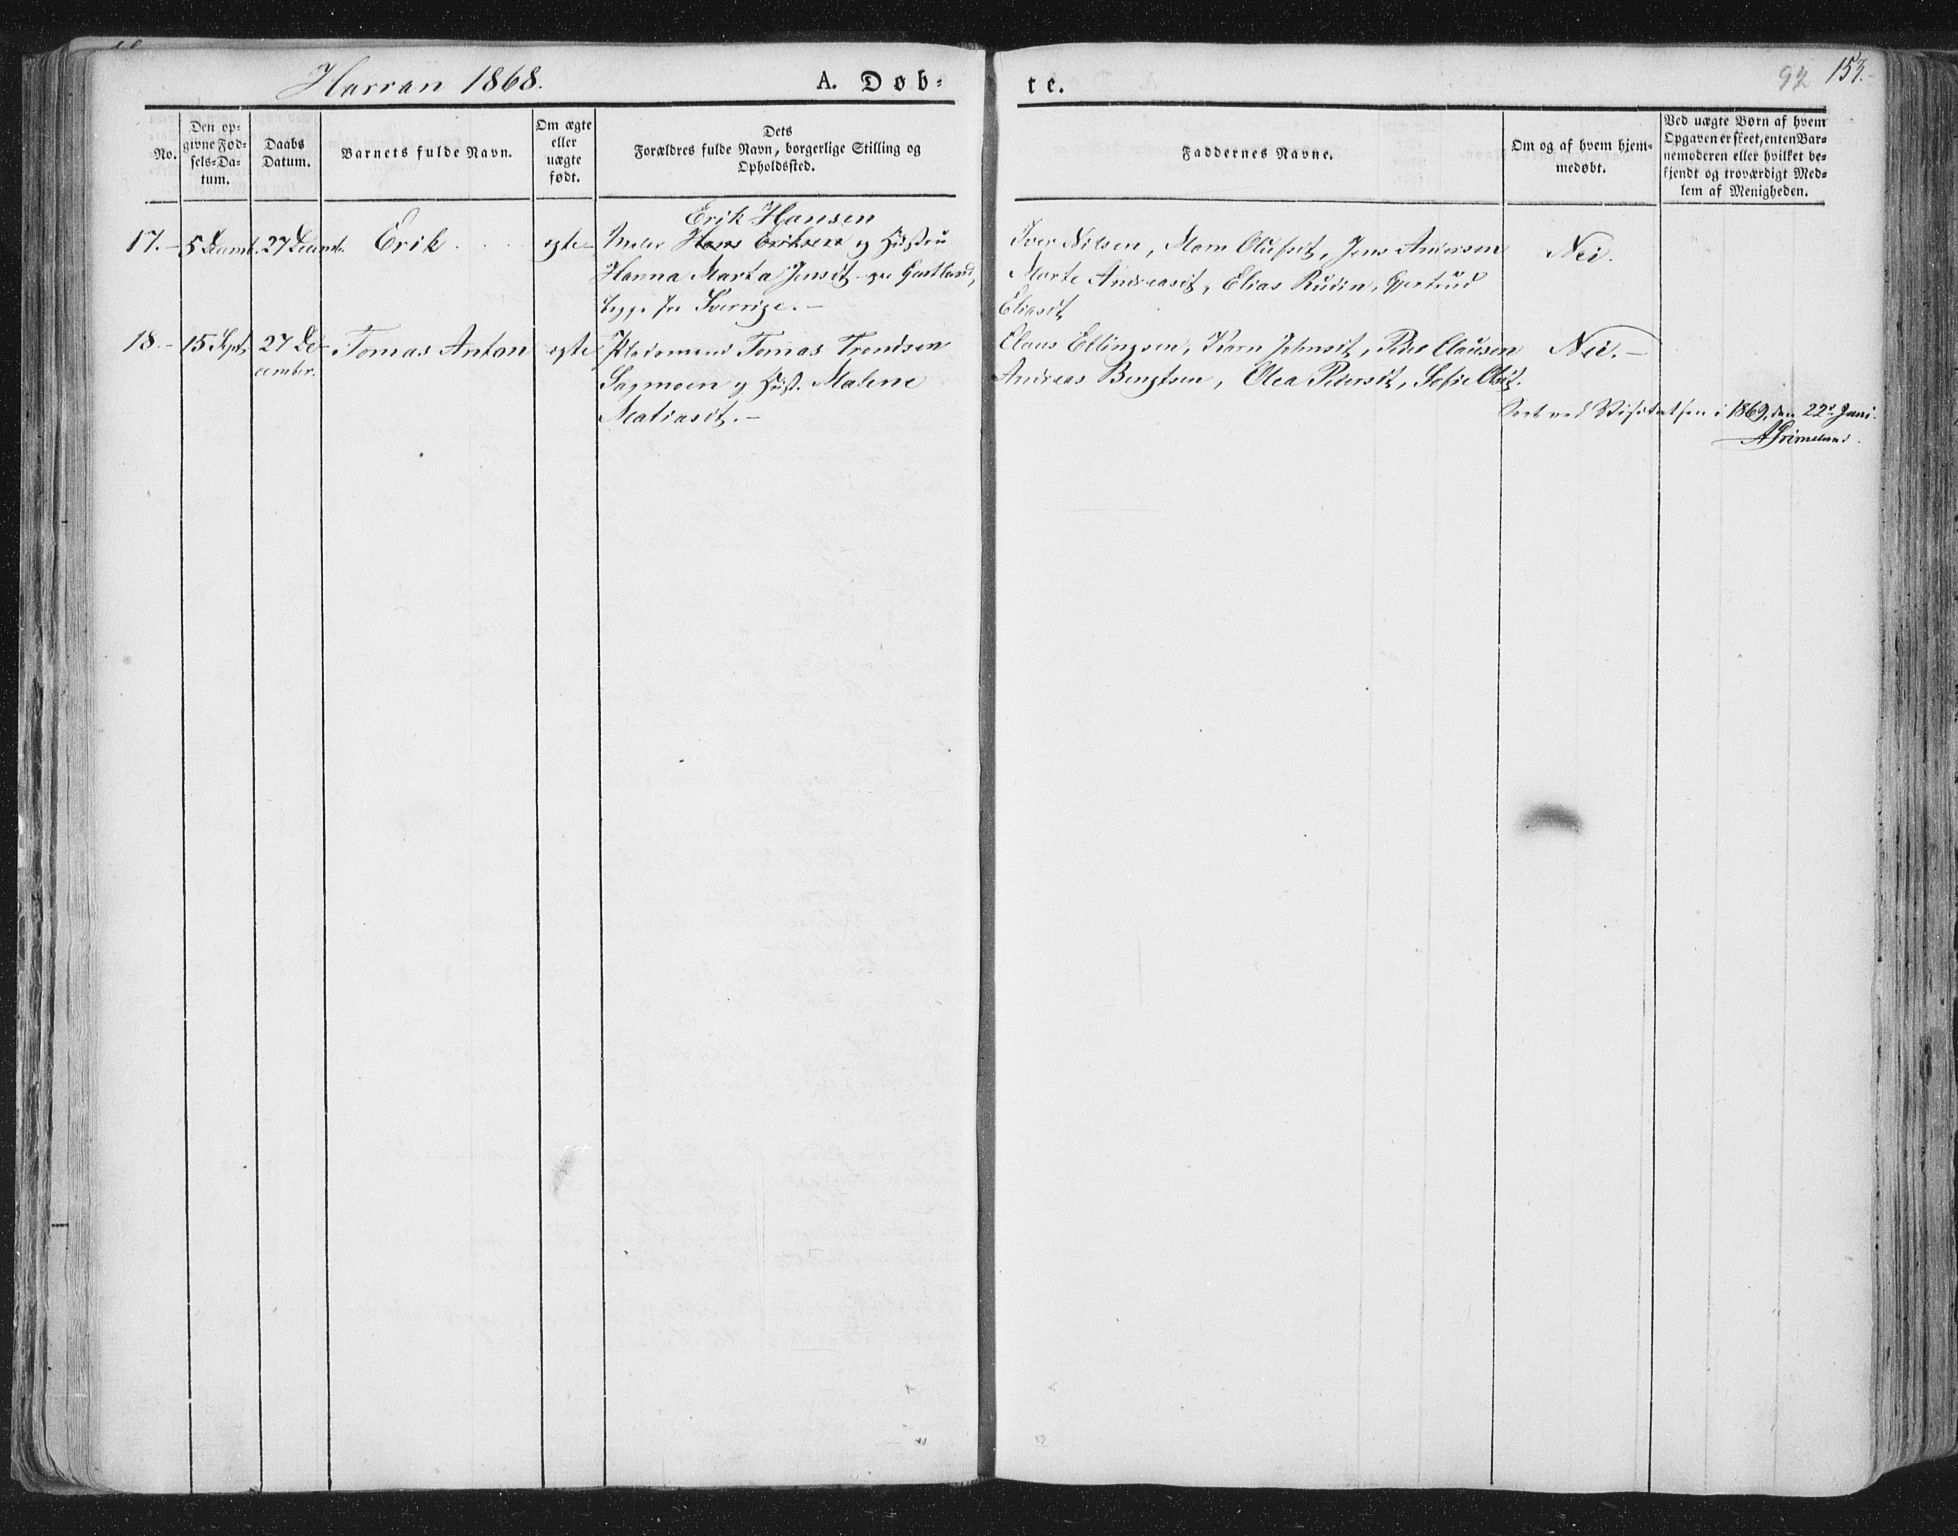 Harran 1868.
A. Døb-
te.
92 153.
No.
Den op-
givne Fød-
sels-Da-
tum.
Daabs
Datum.
Barnets fulde Navn.
Om ægte
eller
uægte
født.
Dets
Forældres fulde Navn, borgerlige Stilling og
Opholdssted.
Faddernes Navne.
Om og af hvem hjem-
medøbt.
Ved uægte Børn af hvem
Opgaven er skeet, enten Bar-
nemoderen eller hvilket be-
kjendt og troværdigt Med-
lem af Menigheden.
Erik Hansen
17. 5 Decmb. 27 Decemb. Erik egte Hans Eriksen og Hustru
Hanna Marta Jensdt.
fra Sverrige.
Iver Nilsen, Olufsdt, Jens Andersen
Marte Andreasdt, Elias Rudin, Gjertrud
Eliasdt
Nei.
18. 15 Sept. 27 De- Tomas Anton egte Pladsmand Tomas Trondsen
cembr.
Sagmoen og Hust. Malene
Matiasdt.
Claus Ellingsen, Karn Johnsdt, Peder Clausen
Andreas Bengtsen, Olea Pedersdt, Sofie Olsdt.
Nei.
Seet ved Visitatsen i 1869, den 22d Juni.
A Grimelund.